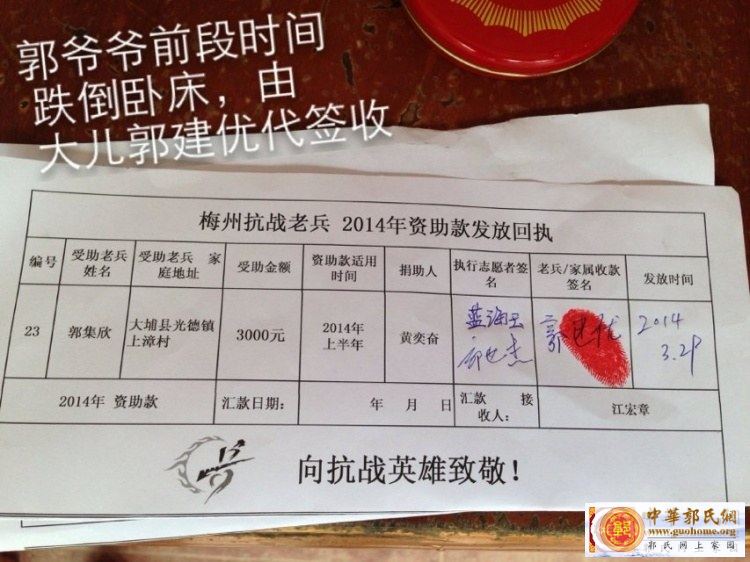 郭爷爷前段时间
跌倒卧床，由
大儿郭建优代签收
梅州抗战老兵 2014年资助款发放回执
编号 受助老兵姓名 受助老兵 家庭地址 受助金额 资助款适用时间 捐助人 执行志愿者签名 老兵/家属收款签名 发放时间
23 郭集欣 大埔县光德镇上漳村 3000元 2014年上半年 黄奕奋 蓝海 郭建优 2014 3.29
2014年 资助款 汇款日期： 年 月 日 汇款 接收人： 江宏章
向抗战英雄致敬！
中華郭氏網
www.guohome.org
郭氏网上家园